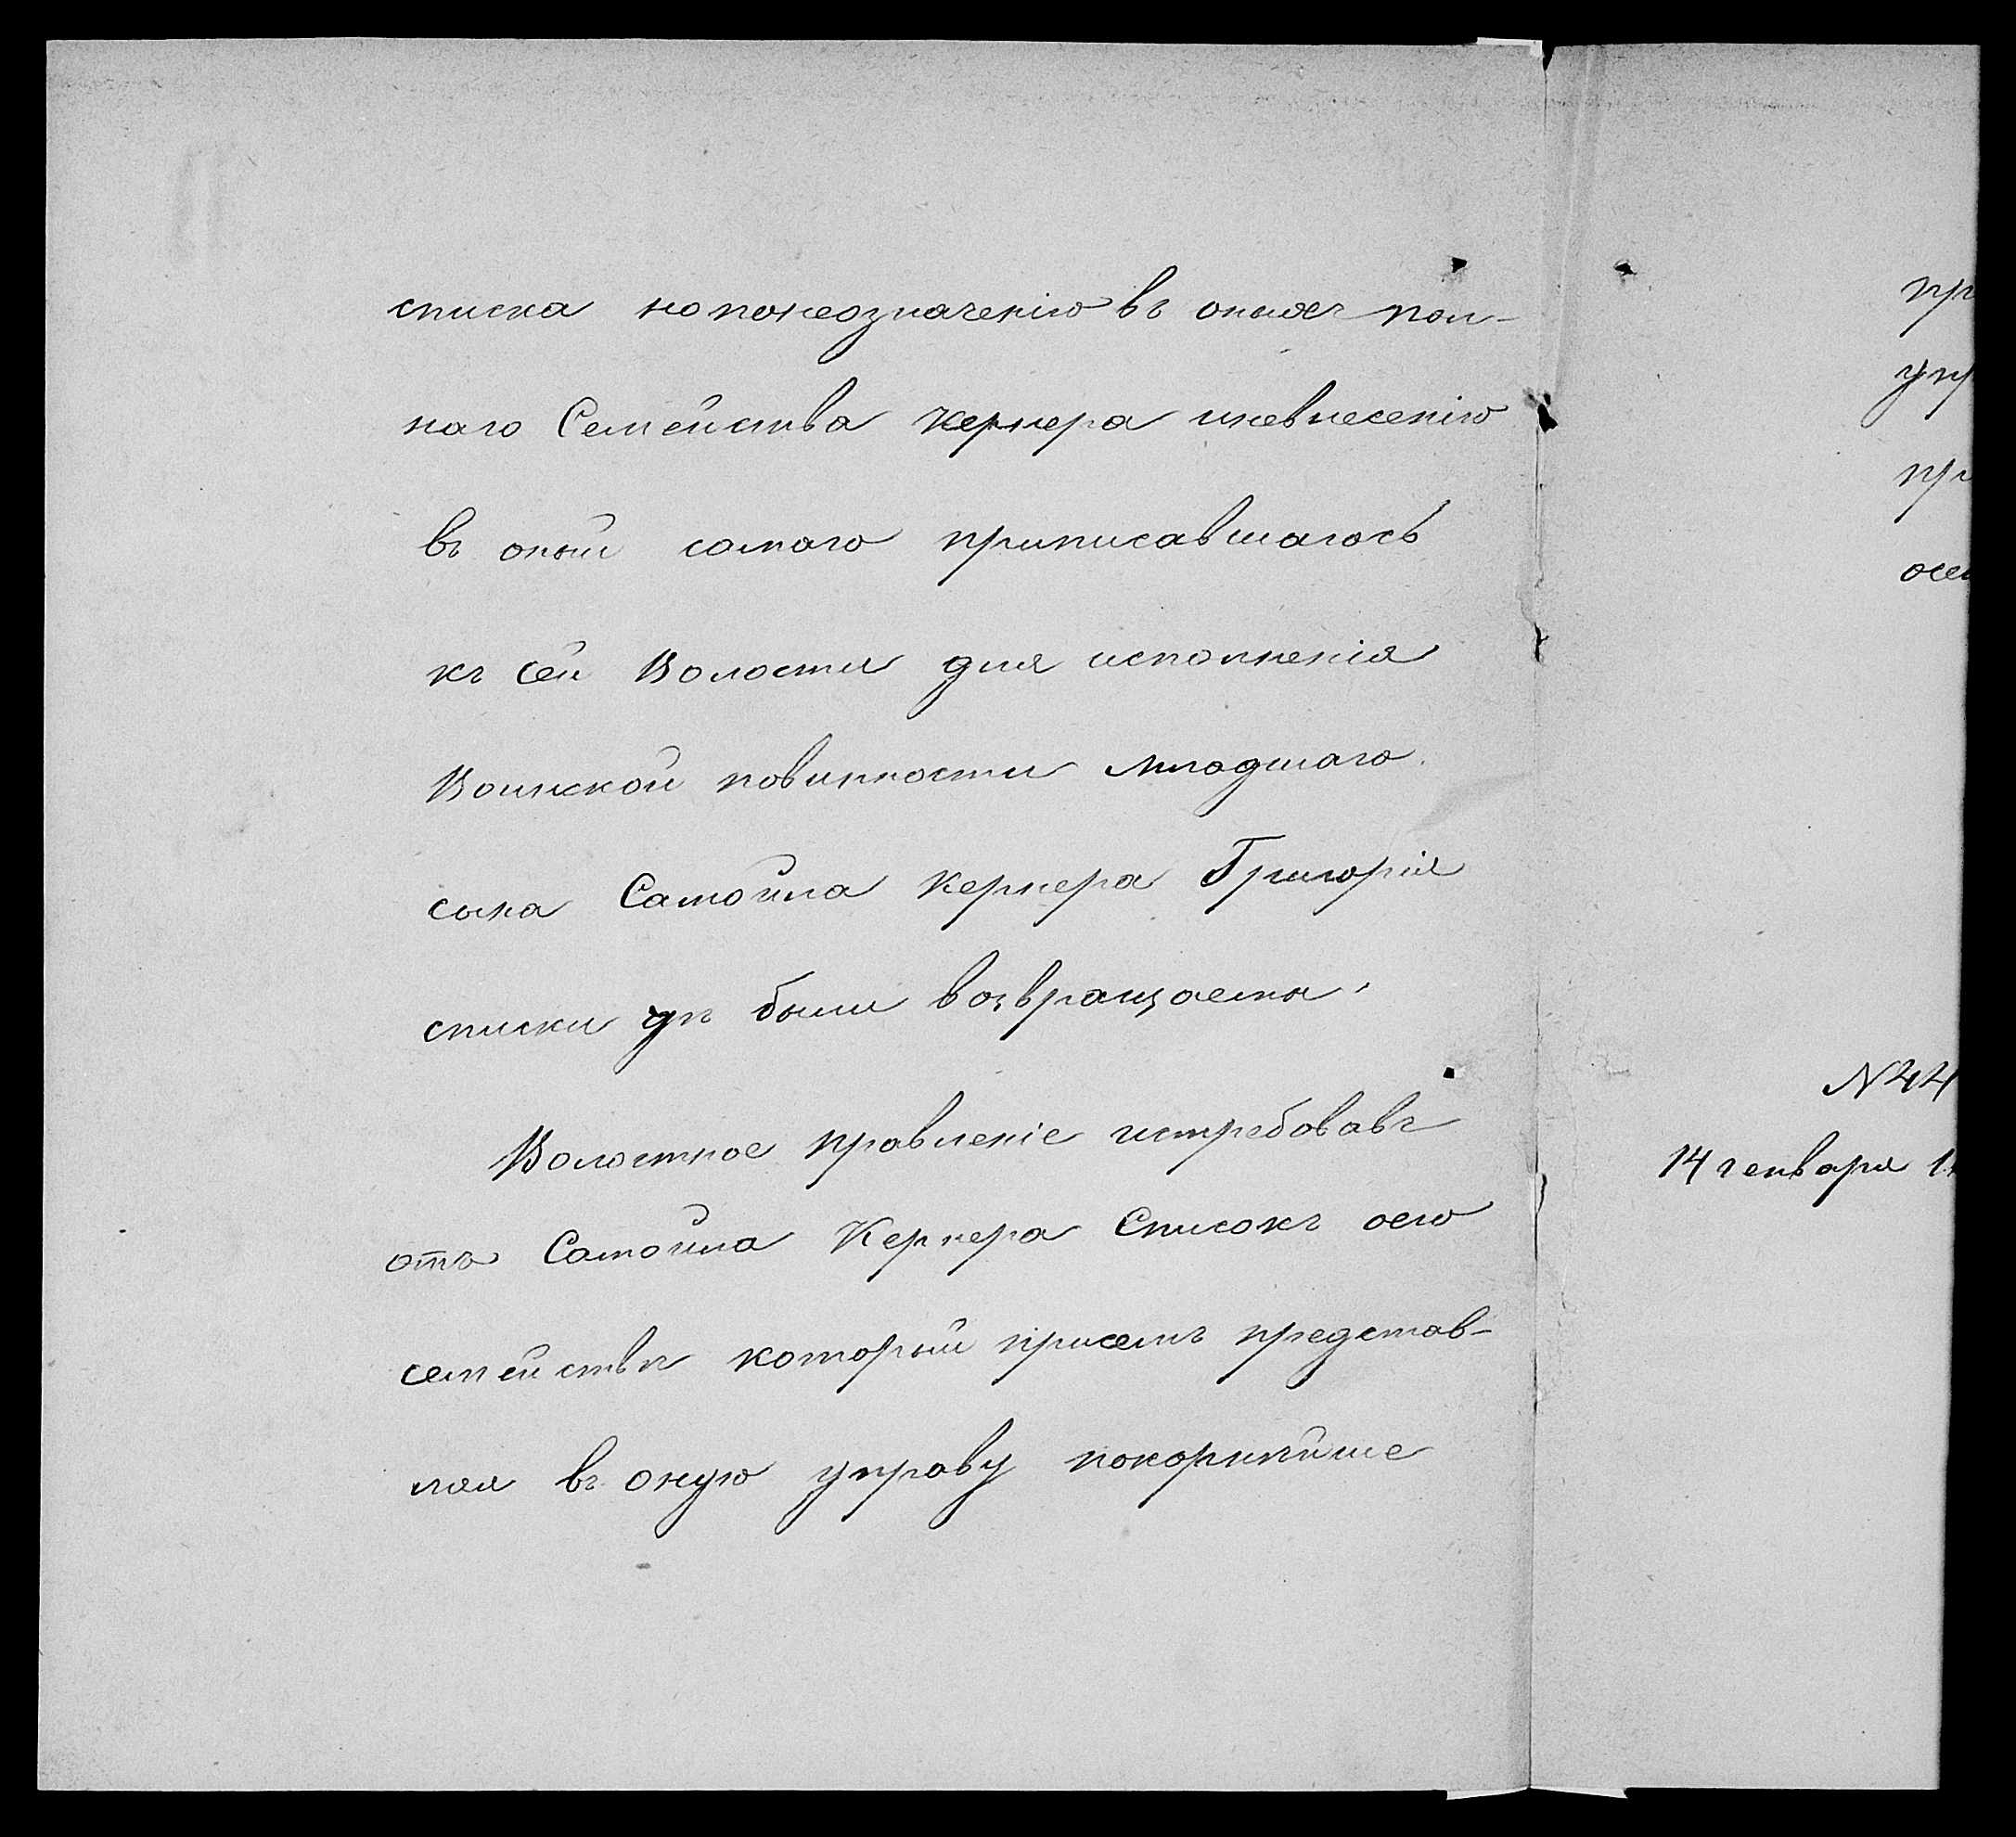 списка но понеозначенію въ оныхъ пол-
наго Семейства Кернера иневнесенію
въ оный самаго приписавшагось
къ сей Волости для исполненія
Воинской повинности младшаго
сына Самойла Кернера Григорія
списки были возвращаемы,
Волостное правленіе истребовавъ
отъ Самойла Кернера Списокъ осго
семействѣ который присемъ представ-
ляя въ оную управу покорнѣйше
пр
упр
при
осем
N 44
14 генваря 1